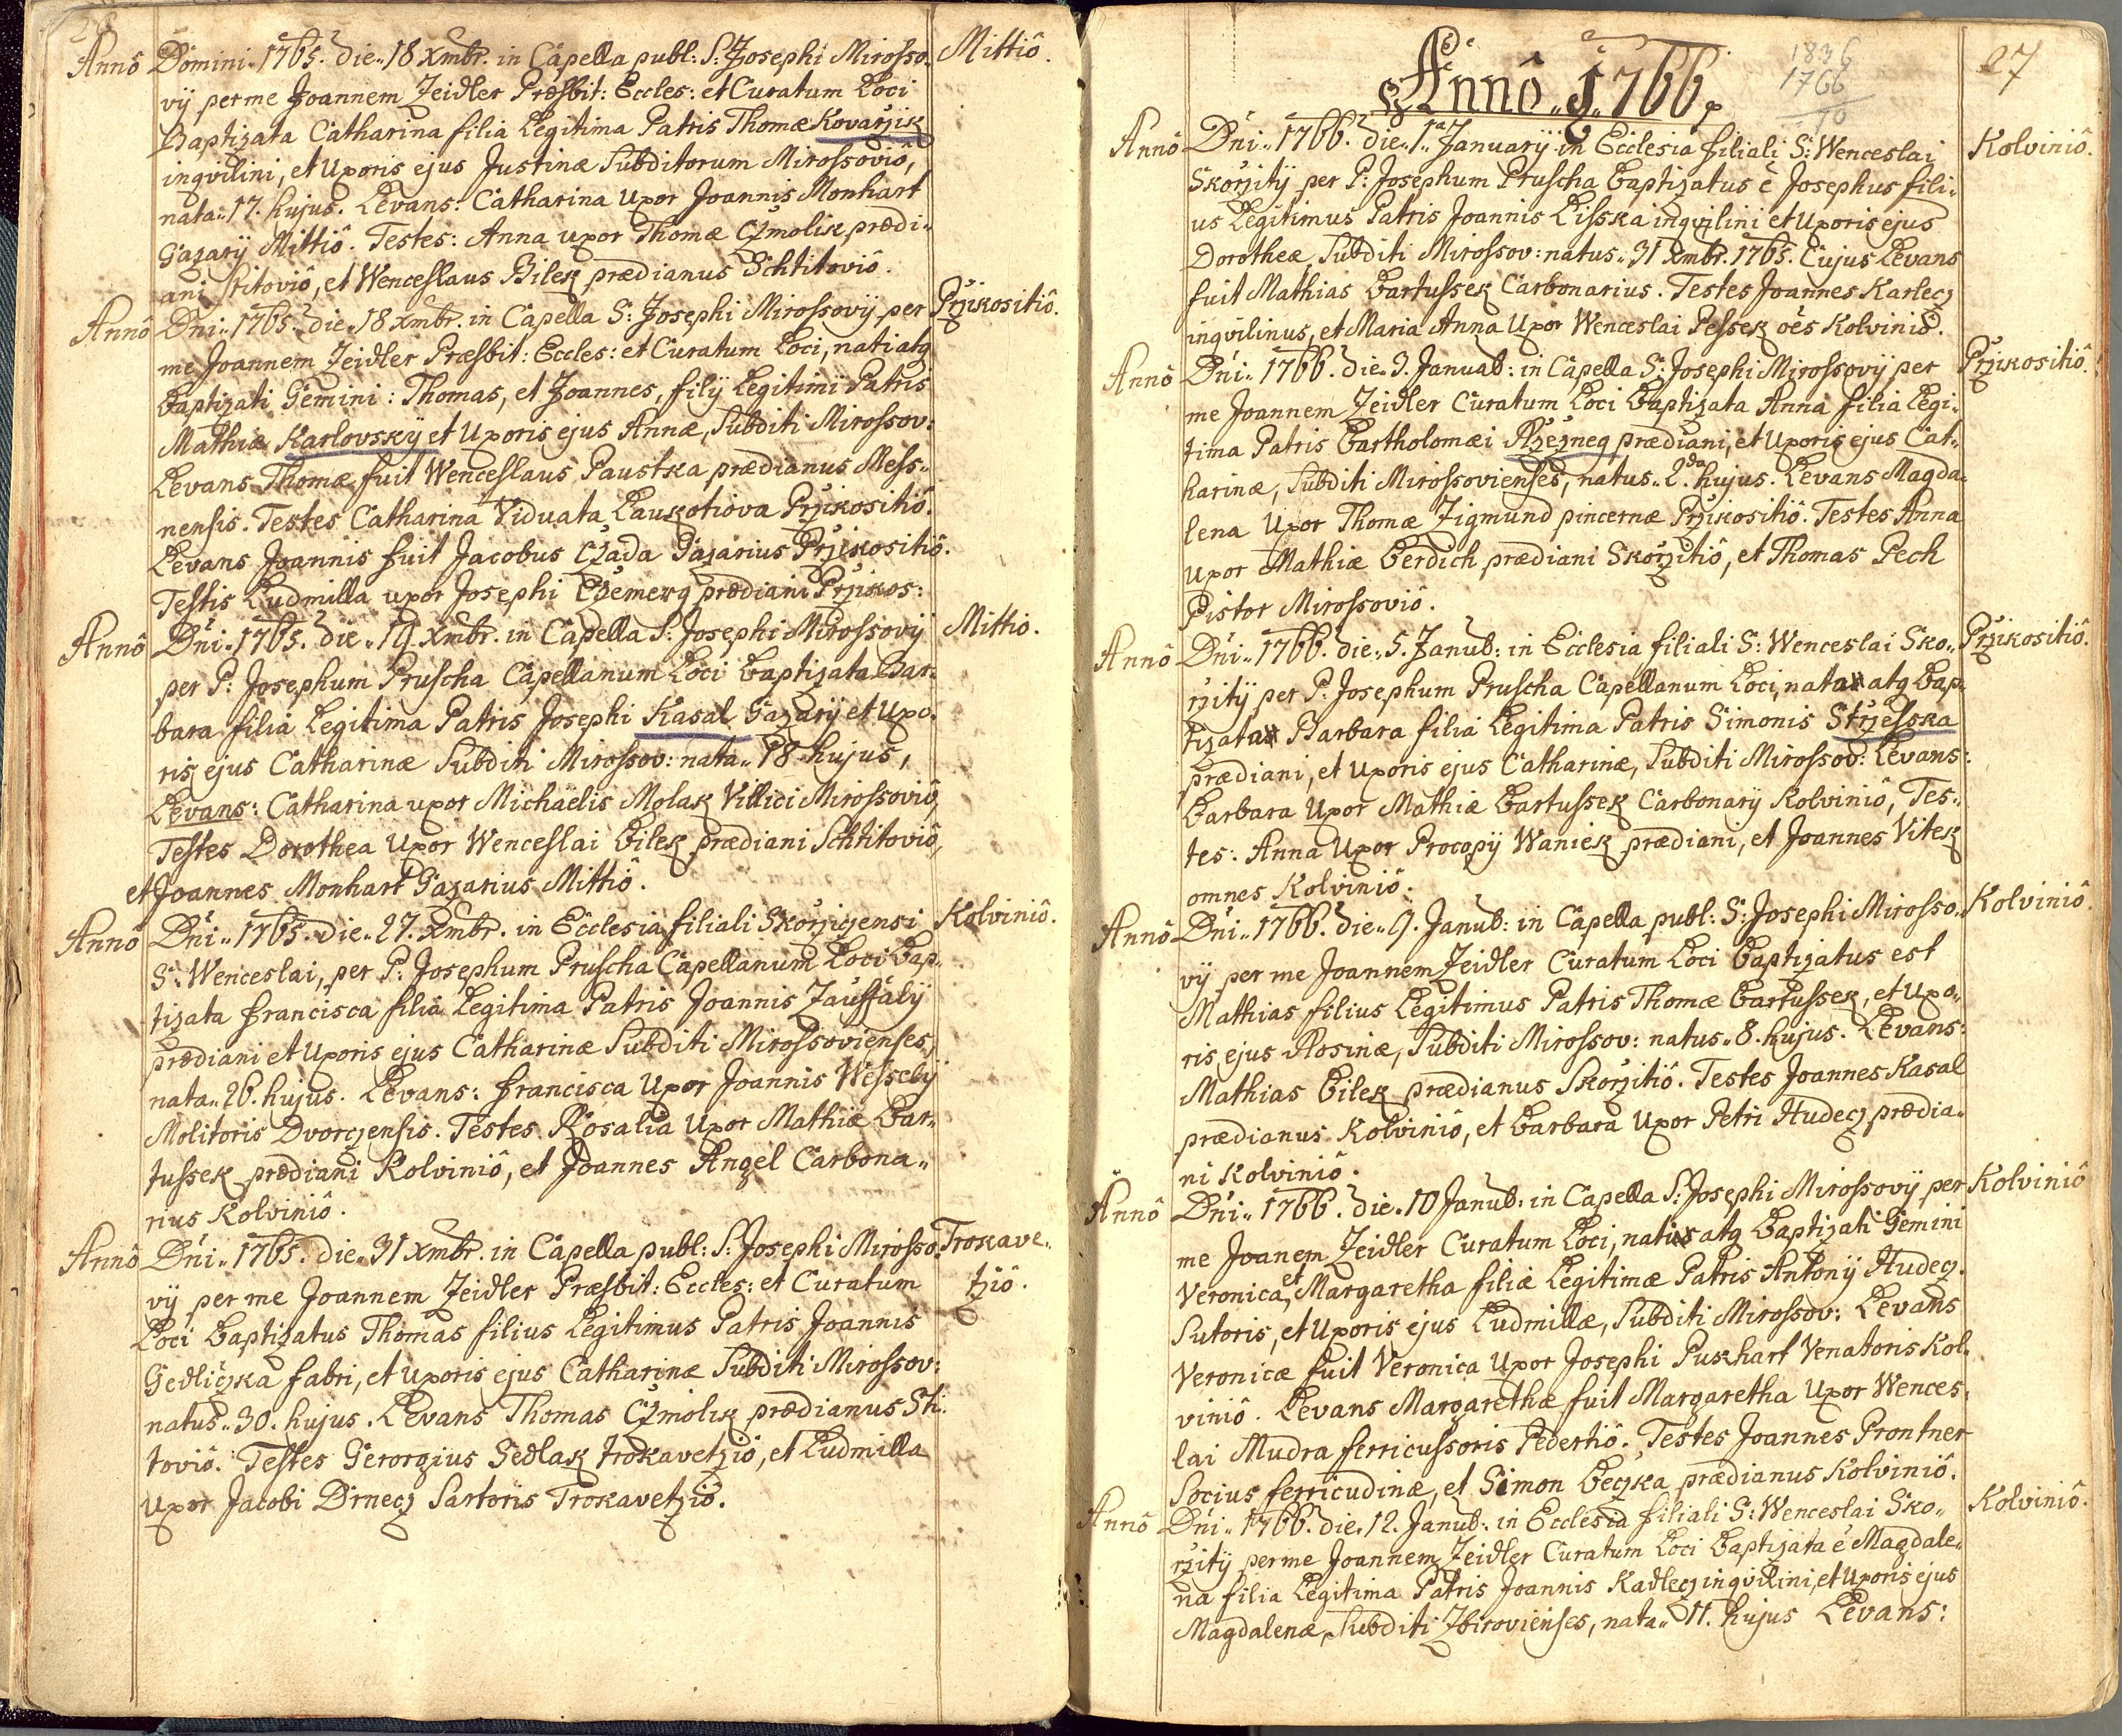 26
Annô Domini 1765. die 18 Xmbr. in Capella publ: S: Josephi Mirosso- Mittiô.
vij per me Joannem Zeidler Præsbit: Eccles: et Curatum Loci
Baptizata Catharina filia Legitima Patris Thomæ Kovarzik
inqvilini, et Uxoris ejus Justinæ Subditorum Mirossoviô,
nata 17. hujus. Levans: Catharina Uxor Joannis Monhart
Gazarij Mittiô. Testes: Anna uxor Thomæ Czmolik prædi-
ani Stitoviô, et Wenceslaus Bilek prædianus Schtitoviô.
Annô Dni 1765. die 18 Xmbr. in Capella S: Josephi Mirossovij per Przikositiô.
me Joannem Zeidler Præsbit: Eccles: et Curatum Loci, nati atq
Baptizati Gemini: Thomas, et Joannes, filij Legitimi Patris
Mathiæ Karlovskÿ et Uxoris ejus Annæ, Subditi Mirossov:
Levans Thomæ fuit Wenceslaus Paustka prædianus Mess-
nensis. Testes Catharina Viduata Laukotiova Przikositiô.
Levans Joannis fuit Jacobus Czada Gazarius Przikositiô.
Testis Ludmilla uxor Josephi Czemerg prædiani Przikos:
Annô Dni 1765. die 19 Xmbr. in Capella S: Josephi Mirossovij Mittiô.
per P: Josephum Pruscha Capellanum Loci Baptizata Bar-
bara filia Legitima Patris Josephi Kasal Gazarij et Uxo-
ris ejus Catharinæ Subditi Mirossov: nata 18 hujus,
Levans: Catharina uxor Michaëlis Molak Villici Mirossoviô,
Testes Dorothea Uxor Wenceslai Bilek prædiani Schtitoviô,
et Joannes Monhart Gazarius Mittiô.
Annô Dni 1765. die 27. Xmbr. in Ecclesia filiali Skorziczensi Kolviniô.
S: Wenceslai, per P: Josephum Pruscha Capellanum Loci Bap-
tizata Francisca filia Legitima Patris Joannis Zauffalÿ
prædiani et Uxoris ejus Catharinæ Subditi Mirossovienses,
nata 26. hujus. Levans: Francisca Uxor Joannis Wesselÿ
Molitoris Dvorczensis. Testes Rosalia Uxor Mathiæ Bar-
tussek prædiani Kolviniô, et Joannes Angel Carbona-
rius Kolviniô.
Annô Dni 1765. die 31 Xmbr. in Capella publ: S: Josephi Mirosso- Trokave-
vij per me Joannem Zeidler Præsbit: Eccles: et Curatum tziô.
Loci Baptizatus Thomas filius Legitimus Patris Joannis
Gedliczka fabri, et Uxoris ejus Catharinæ Subditi Mirossov:
natus 30. hujus. Levans Thomas Czmolik prædianus Sti-
toviô. Testes Gerorgius Sedlak trokavetziô, et Ludmilla
Uxor Jacobi Drnecz Sartoris Trokavetziô.
Annô 1766
1836
1766
70
27
Annô Dni 1766. die 1a Januarij in Ecclesia filiali S: Wenceslai Kolviniô.
Skorzitij per P: Josephum Pruscha Baptizatus è Josephus fili-
us Legitimus Patris Joannis Lisska inqvilini et Uxoris ejus
Dorotheæ Subditi Mirossov: natus 31 Xmbr. 1765. Cujus Levans
fuit Mathias Bartussek Carbonarius. Testes Joannes Karlecz
inqvilinus, et Maria Anna Uxor Wenceslai Pessek oês Kolviniô.
Annô Dni 1766. die 3. Januab: in Capella S: Josephi Mirossovij per Przikositiô.
me Joannem Zeidler Curatum Loci Baptizata Anna filia Legi-
tima Patris Bartholomæi Rzezneg prædiani, et Uxoris ejus Cat-
harinæ, Subditi Mirossovienses, natus 2da hujus. Levans Magda-
lena Uxor Thomæ Zigmund pincernæ Przikositiô. Testes Anna
Uxor Mathiæ Berdich prædiani Skorzitiô, et Thomas Pech
Pistor Mirossoviô.
Annô Dni 1766. die 5. Janub: in Ecclesia filiali S: Wenceslai Sko- Przikositiô.
rzitij per P: Josephum Pruscha Capellanum Loci, nata atq Bap-
tizata Barbara filia Legitima Patris Simonis Strzesska
prædiani, et Uxoris ejus Catharinæ, Subditi Mirossov: Levans:
Barbara Uxor Mathiæ Bartussek Carbonarij Kolviniô, Tes-
tes: Anna Uxor Procopij Waniek prædiani, et Joannes Vitek
omnes Kolviniô.
Annô Dni 1766. die 9. Janub: in Capella publ: S: Josephi Mirosso- Kolviniô.
vij per me Joannem Zeidler Curatum Loci Baptizatus est
Mathias filius Legitimus Patris Thomæ Bartussek, et Uxo-
ris ejus Rosinæ, Subditi Mirossov: natus 8. hujus. Levans:
Mathias Bilek prædianus Skorzitiô. Testes Joannes Kasal
prædianus Kolviniô, et Barbara Uxor Petri Hudecz prædia-
ni Kolviniô.
Annô Dni 1766. die 10 Janub: in Capella S: Josephi Mirossovij per Kolviniô
me Joanem Zeidler Curatum Loci, nati atq Baptizati Gemini
Veronica, et Margaretha filiæ Legitimæ Patris Antonij Hudecz
Sutoris, et Uxoris ejus Ludmillæ, Subditi Mirossov: Levans
Veronicæ fuit Veronica Uxor Josephi Pukhart Venatoris Kol-
viniô. Levans Margarethæ fuit Margaretha Uxor Wences-
lai Mudra ferricussoris Pedertiô. Testes Joannes Prontner
Socius ferricudinæ, et Simon Beczka prædianus Kolviniô.
Annô Dni 1766. die 12. Janub: in Ecclesia filiali S: Wenceslai Sko- Kolviniô.
rzitij per me Joannem Zeidler Curatum Loci Baptizata è Magdale-
na filia Legitima Patris Joannis Kadlecz inqvilini, et Uxoris ejus
Magdalenæ, Subditi Zbirovienses, nata 11. hujus Levans: